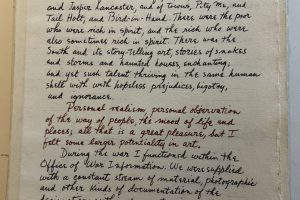 and Jasper Lancaster, and of towns, Pity Me, and
Tail Holt, and Bird-in-Hand. There were the poor
who were rich in spirit, and the rich who were
also sometimes rich in spirit. There was the
South and its story-telling art, stories of snakes
and storms and haunted houses, enchanting;
and yet such talent thriving in the same human
shell with hopeless prejudices, bigotry,
and ignorance.
Personal realism, personal observation
of the way of people, the mood of life and
places; all that is a great pleasure, but I
felt some larger potentiality in art.
During the war I functioned within the
Office of War Information. We were supplied
with a constant stream of material, photographic
and other kinds of documentation of the